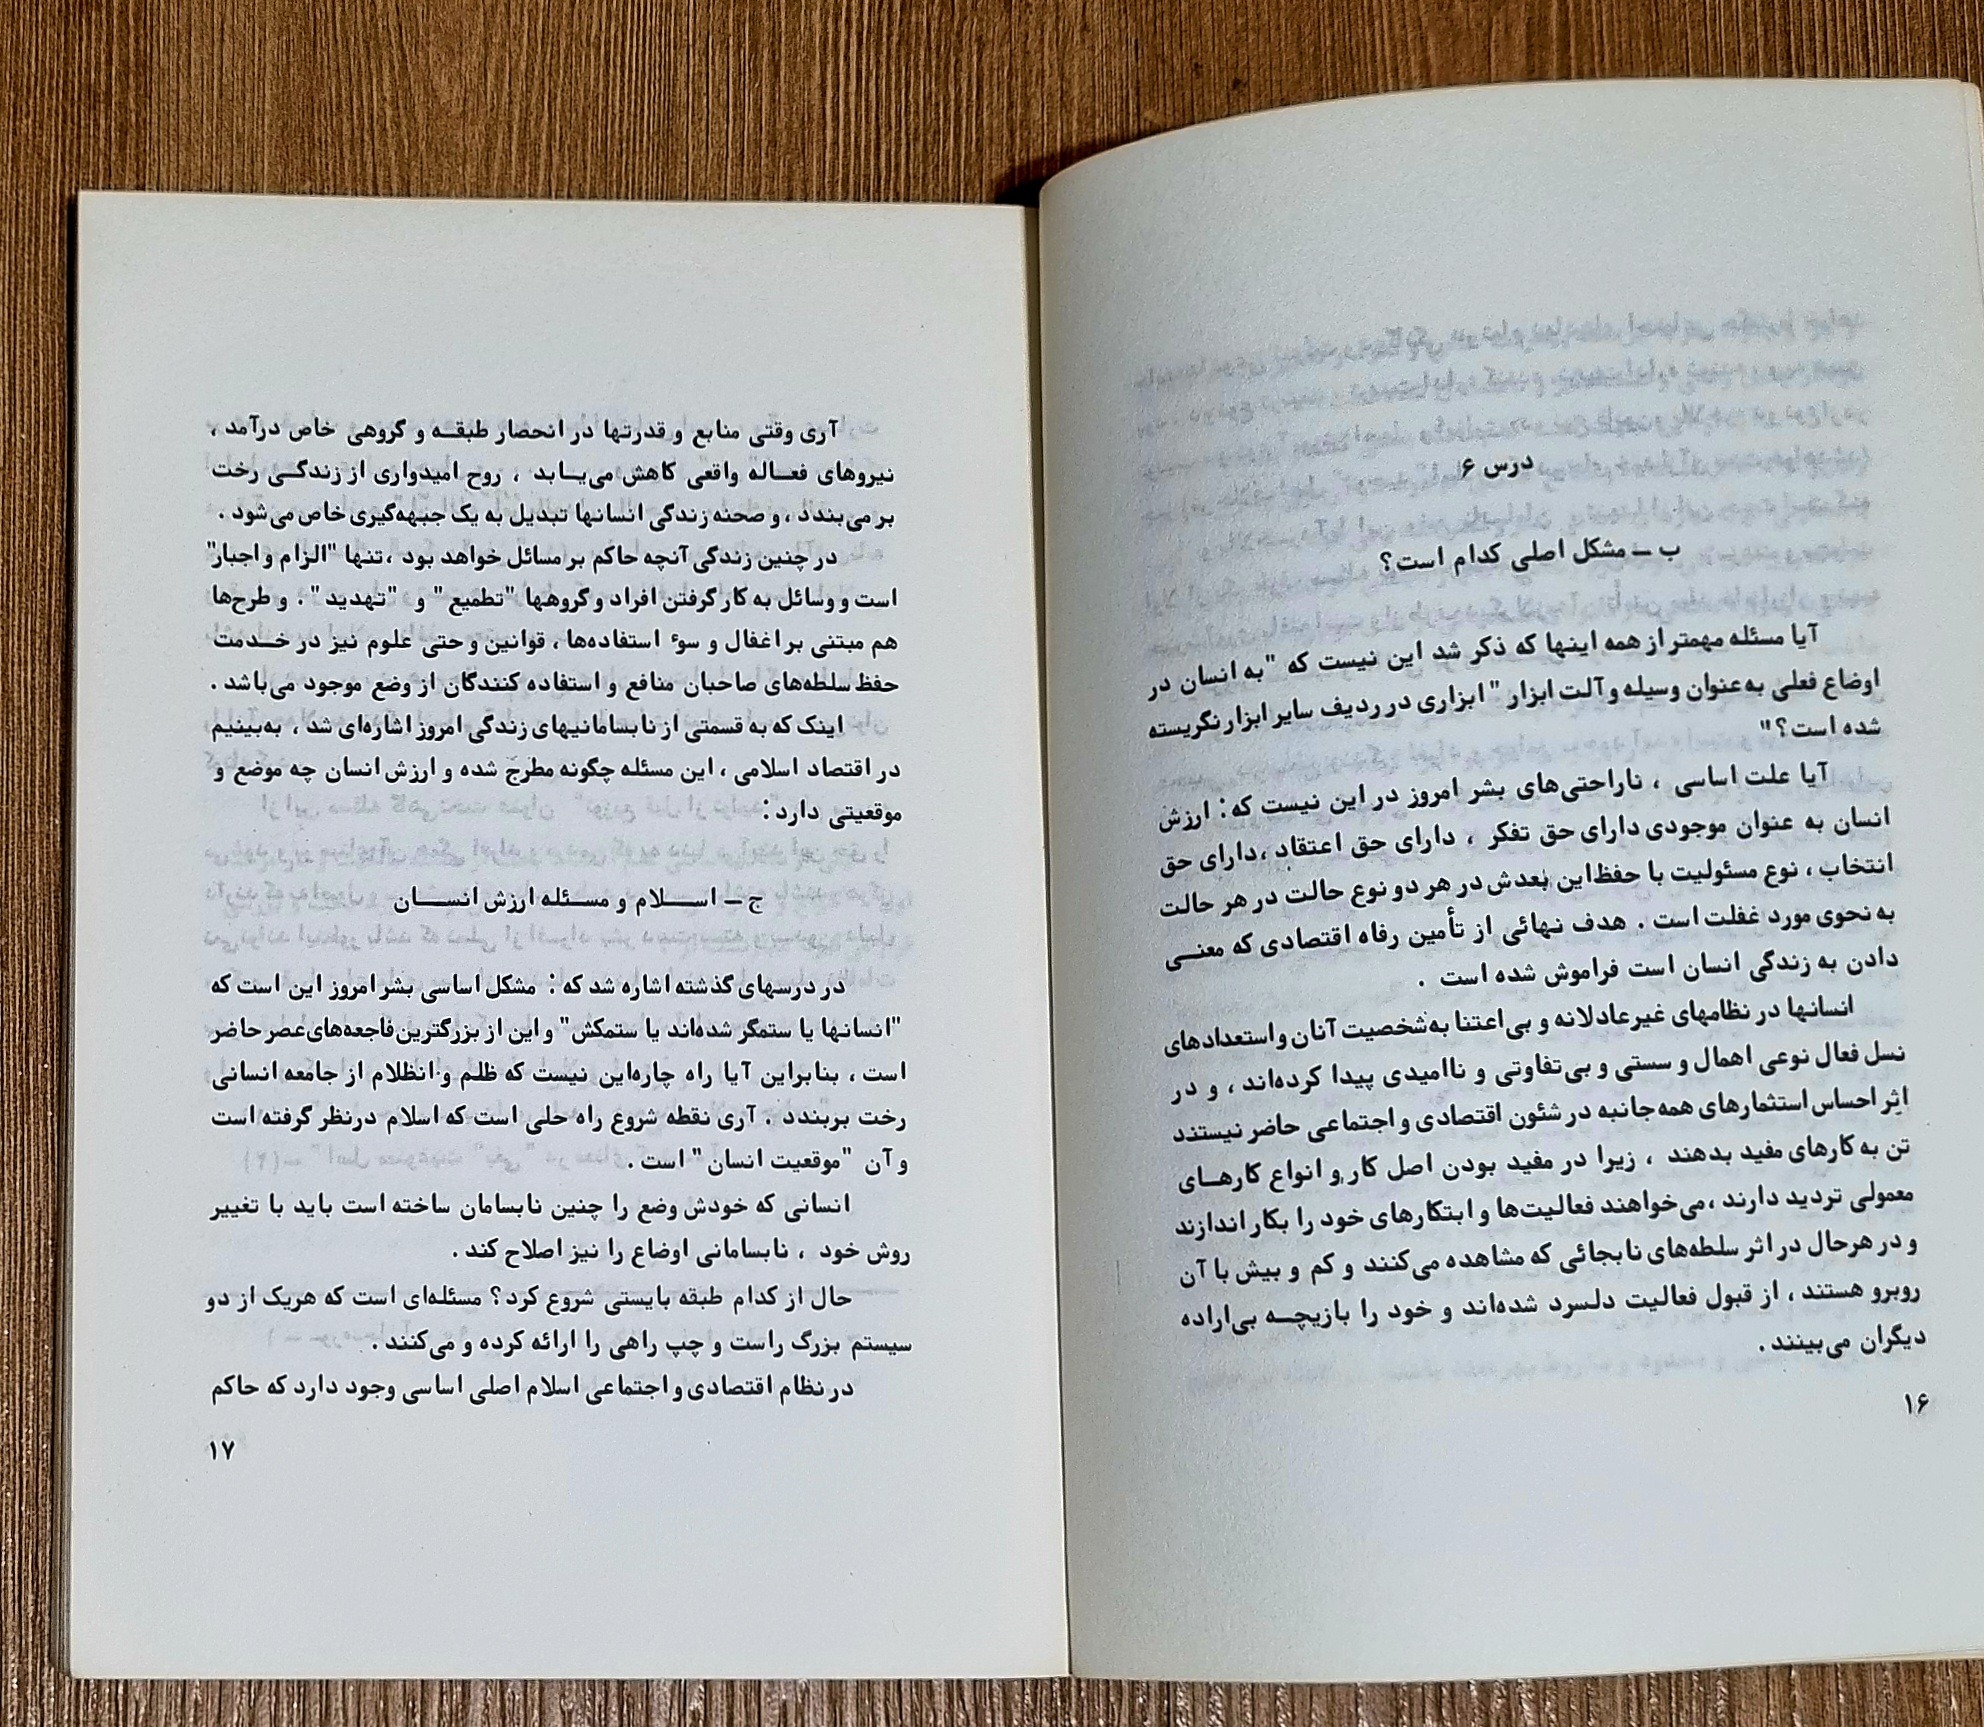 درس ۶
ب ــ مشکل اصلی کدام است؟
آیا مسئله مهمتر از همه اینها که ذکر شد این نیست که "به انسان در
اوضاع فعلی به‌عنوان وسیله و آلت ابزار " ابزاری در ردیف سایر ابزار نگریسته
شده است؟"
آیا علت اساسی ، ناراحتی‌های بشر امروز در این نیست که: ارزش
انسان به عنوان موجودی دارای حق تفکر ، دارای حق اعتقاد ،دارای حق
انتخاب ، نوع مسئولیت با حفظ این بعدش در هر دو نوع حالت در هر حالت
به نحوی مورد غفلت است . هدف نهائی از تأمین رفاه اقتصادی که معنــی
دادن به زندگی انسان است فراموش شده است .
انسانها در نظامهای غیرعادلانه و بی‌اعتنا به‌شخصیت آنان و استعدادهای
نسل فعال نوعی اهمال و سستی و بی‌تفاوتی و ناامیدی پیدا کرده‌اند ، و در
اثر احساس استثمارهای همه‌جانبه در شئون اقتصادی و اجتماعی حاضر نیستند
تن به کارهای مفید بدهند ، زیرا در مفید بودن اصل کار و انواع کارهــای
معمولی تردید دارند ،می‌خواهند فعالیت‌ها و ابتکارهای خود را بکار اندازند
و در هرحال در اثر سلطه‌های نابجائی که مشاهده می‌کنند و کم و بیش با آن
روبرو هستند ، از قبول فعالیت دلسرد شده‌اند و خود را بازیچــه بی‌اراده
دیگران می‌بینند .
۱۶
آری وقتی منابع و قدرتها در انحصار طبقــه و گروهی خاص درآمد ،
نیروهای فعــاله واقعی کاهش می‌یــابد ، روح امیدواری از زندگــی رخت
بر می‌بندد ، و صحنه زندگی انسانها تبدیل به یک جبهه‌گیری خاص می‌شود .
در چنین زندگی آنچه حاکم بر مسائل خواهد بود ،تنها "الزام و اجبار"
است و وسائل به کار گرفتن افراد و گروهها "تطمیع " و "تهدید ". و طرح‌ها
هم مبتنی بر اغفال و سوءٔ استفاده‌ها ، قوانین و حتی علوم نیز در خــدمت
حفظ سلطه‌های صاحبان منافع و استفاده کنندگان از وضع موجود می‌باشد .
اینک که به قسمتی از نابسامانیهای زندگی امروز اشاره‌ای شد ، به‌بینیم
در اقتصاد اسلامی ، این مسئله چگونه مطرح شده و ارزش انسان چه موضع و
موقعیتی دارد :
ج ــ اســـلام و مسـئله ارزش انســـان
در درسهای گذشته اشاره شد که : مشکل اساسی بشر امروز این است که
"انسانها یا ستمگر شده‌اند یا ستمکش" و این از بزرگترین فاجعه‌های عصر حاضر
است ، بنابراین آیا راه چاره‌این نیست که ظلم و انظلام از جامعه انسانی
رخت بربندد . آری نقطه شروع راه حلی است که اسلام درنظر گرفته است
و آن "موقعیت انسان" است .
انسانی که خودش وضع را چنین نابسامان ساخته است باید با تغییر
روش خود ، نابسامانی اوضاع را نیز اصلاح کند .
حال از کدام طبقه بایستی شروع کرد؟ مسئله‌ای است که هریک از دو
سیستم بزرگ راست و چپ راهی را ارائه کرده و می‌کنند .
در نظام اقتصادی و اجتماعی اسلام اصلی اساسی وجود دارد که حاکم
۱۷